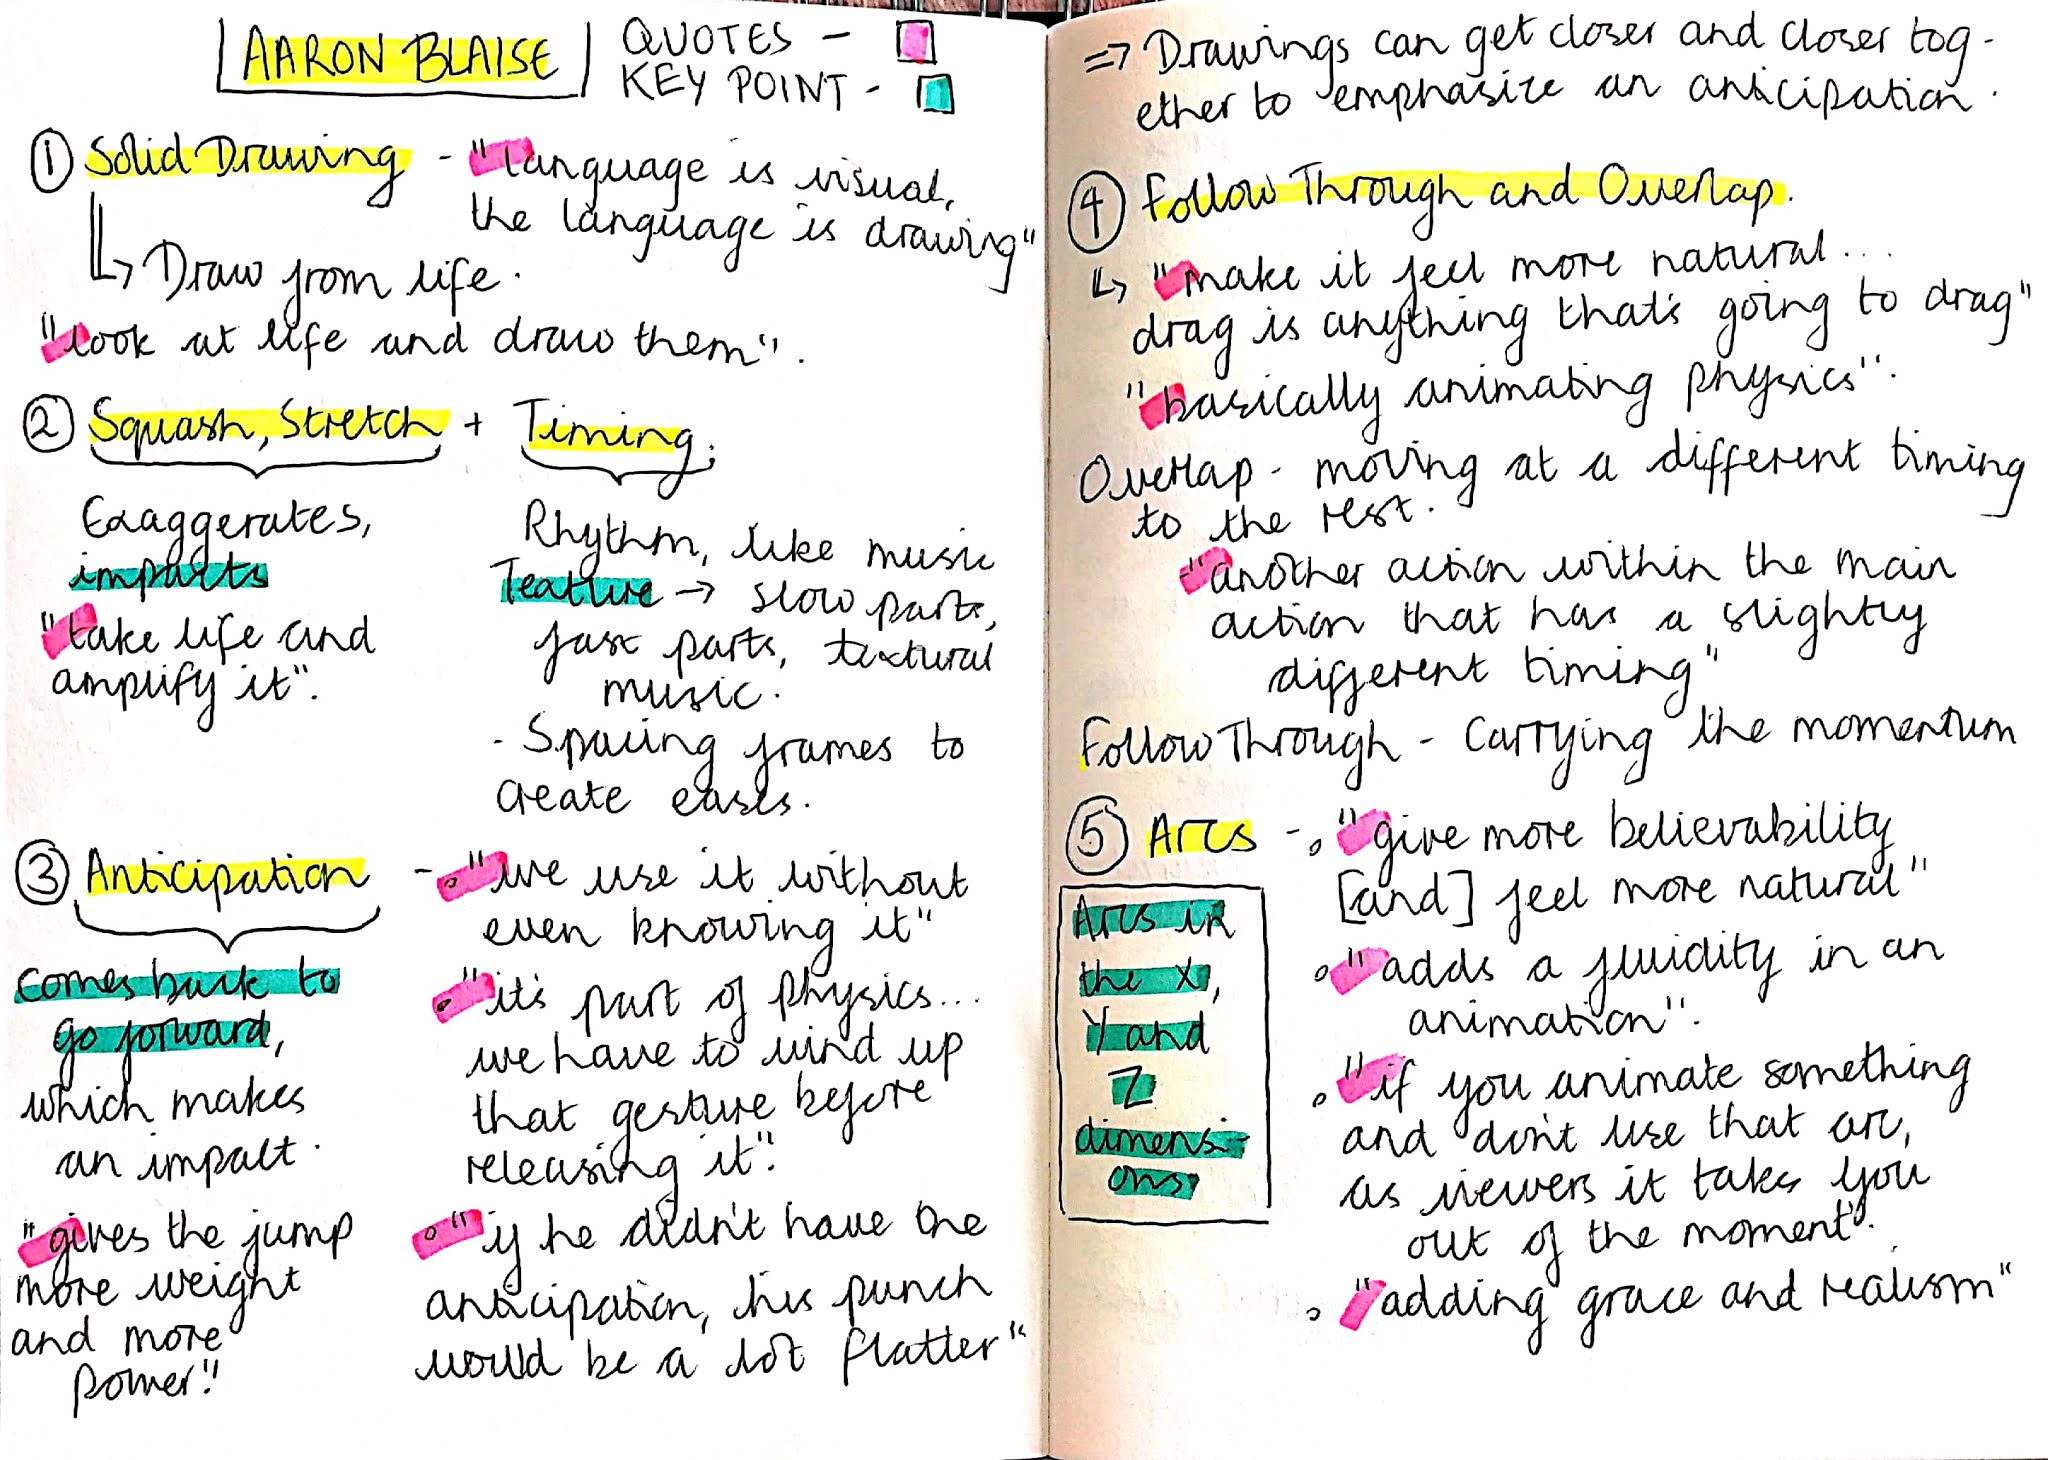 AARON BLAISE
QUOTES -
KEY POINT -
① Solid Drawing - "language is visual,
the language is drawing"
↳ Draw from life.
"look at life and draw them".
② Squash, Stretch + Timing.
Exaggerates,
imparts
"take life and
amplify it".
Rhythm, like music
Texture → slow parts,
fast parts, textural
music.
- Spacing frames to
create eases.
③ Anticipation
comes back to
go forward,
which makes
an impact.
"gives the jump
more weight
and more
power".
- "we use it without
even knowing it"
"it's part of physics...
we have to wind up
that gesture before
releasing it".
"if he didn't have the
anticipation, his punch
would be a lot flatter"
⇒ Drawings can get closer and closer tog-
ether to emphasize an anticipation.
④ Follow Through and Overlap.
↳ "make it feel more natural...
drag is anything that's going to drag"
"basically animating physics".
Overlap - moving at a different timing
to the rest.
- "another action within the main
action that has a slightly
different timing"
Follow Through - Carrying the momentum
⑤ Arcs
Arcs in
the X,
Y and
Z
dimensi-
ons
- "give more believability
[and] feel more natural"
"adds a fluidity in an
animation".
"if you animate something
and don't use that arc,
as viewers it takes you
out of the moment".
"adding grace and realism"